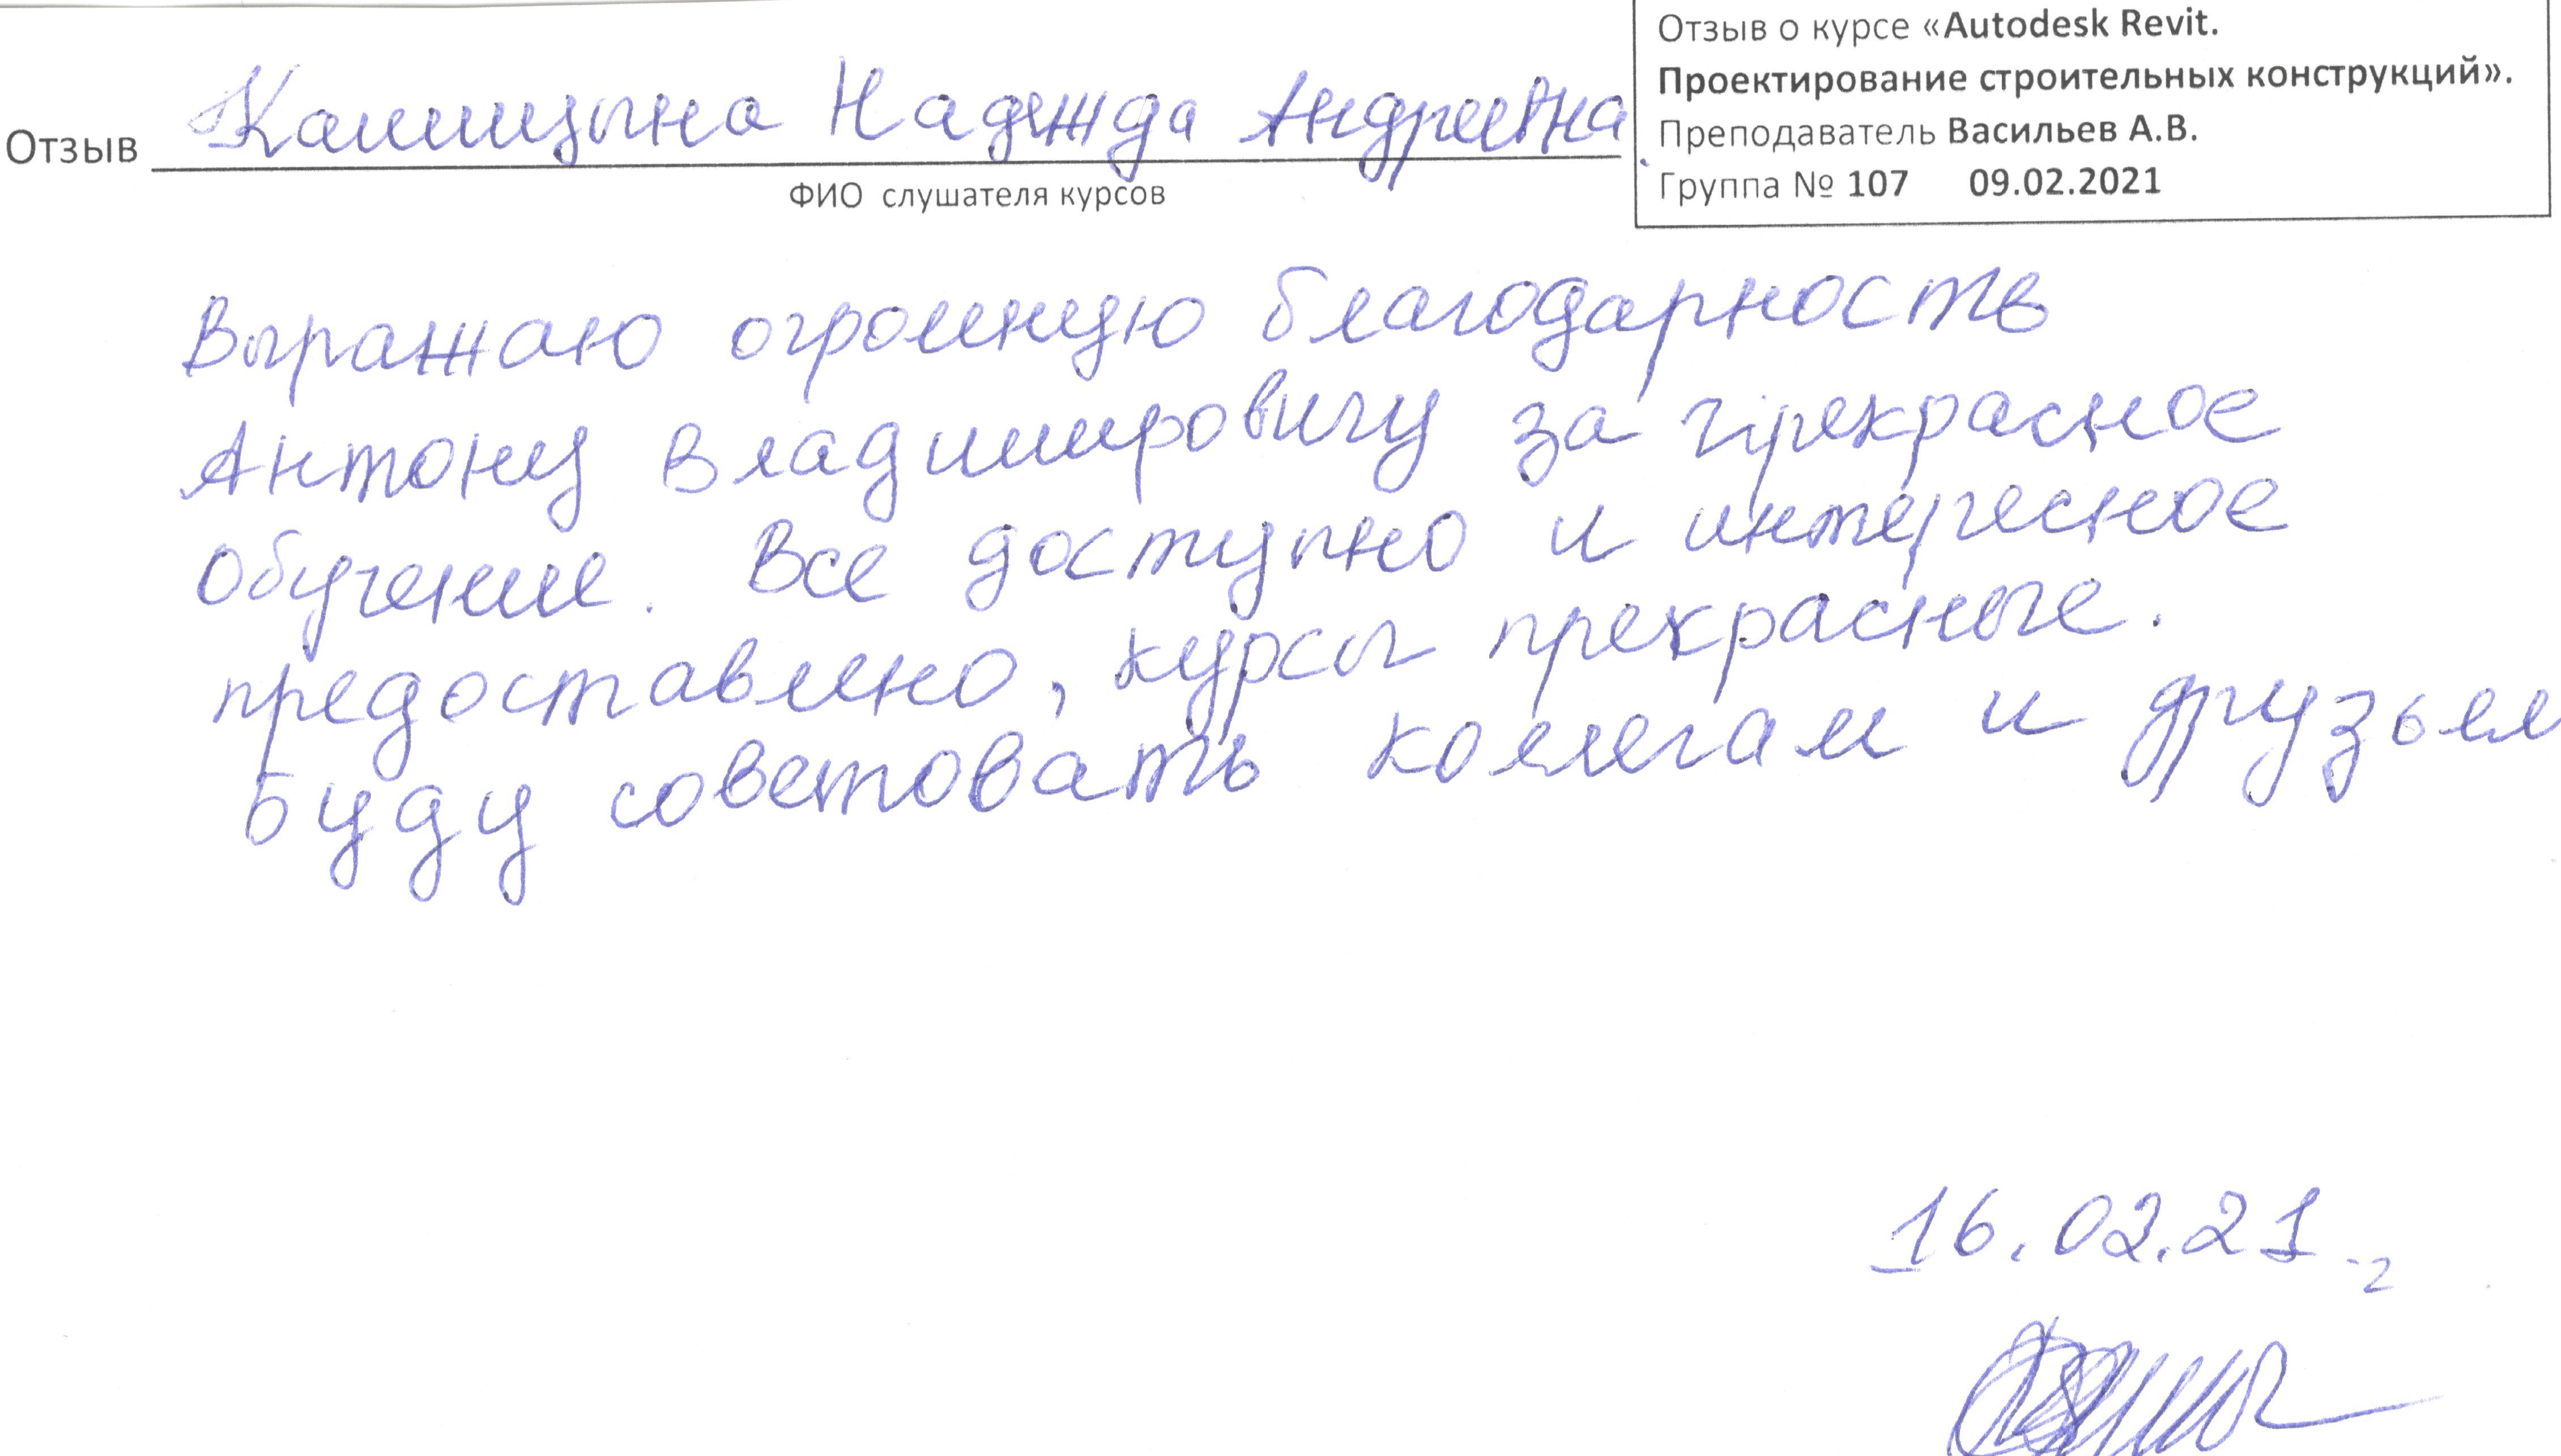 Отзыв о курсе «Autodesk Revit.
Проектирование строительных конструкций».
Преподаватель Васильев А.В.
Группа № 107 09.02.2021
Отзыв Надежда Андреевна
ФИО слушателя курсов
Выражаю огромную благодарность
Антону Владимировичу за прекрасное
обучение. Все доступно и интересное
предоставлено, курсы прекрасные.
Буду советовать коллегам и друзьям
16.02.21 г